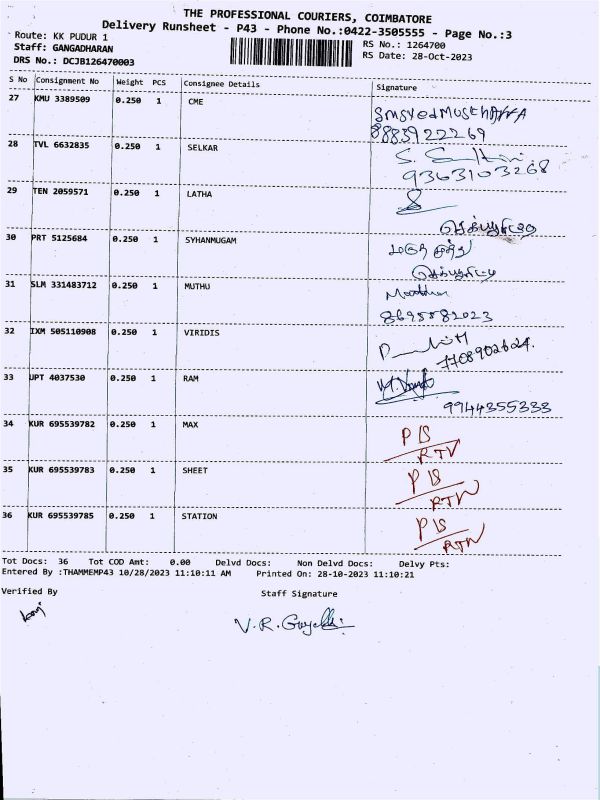 THE PROFESSIONAL COURIERS, COIMBATORE
Delivery Runsheet - P43 - Phone No.:0422-3505555 - Page No.:3
Route: KK PUDUR 1
RS No.: 1264700
Staff: GANGADHARAN
RS Date: 28-Oct-2023
DRS No.: DCJB126470003
S No Consignment No Weight PCS Consignee Details Signature
27 KMU 3389509 0.250 1 CME
8883922269
28 TVL 6632835 0.250 1 SELKAR
9363103268
29 TEN 2059571 0.250 1 LATHA
30 PRT 5125684 0.250 1 SYHANMUGAM
31 SLM 331483712 0.250 1 MUTHU
8695882023
32 IXM 505110908 0.250 1 VIRIDIS
7708902624.
33 UPT 4037530 0.250 1 RAM
9944355333
34 KUR 695539782 0.250 1 MAX
RTN
35 KUR 695539783 0.250 1 SHEET
RTN
36 KUR 695539785 0.250 1 STATION
RTN
Tot Docs: 36 Tot COD Amt: 0.00 Delvd Docs: Non Delvd Docs: Delvy Pts:
Entered By :THAMMEMP43 10/28/2023 11:10:11 AM Printed On: 28-10-2023 11:10:21
Verified By Staff Signature